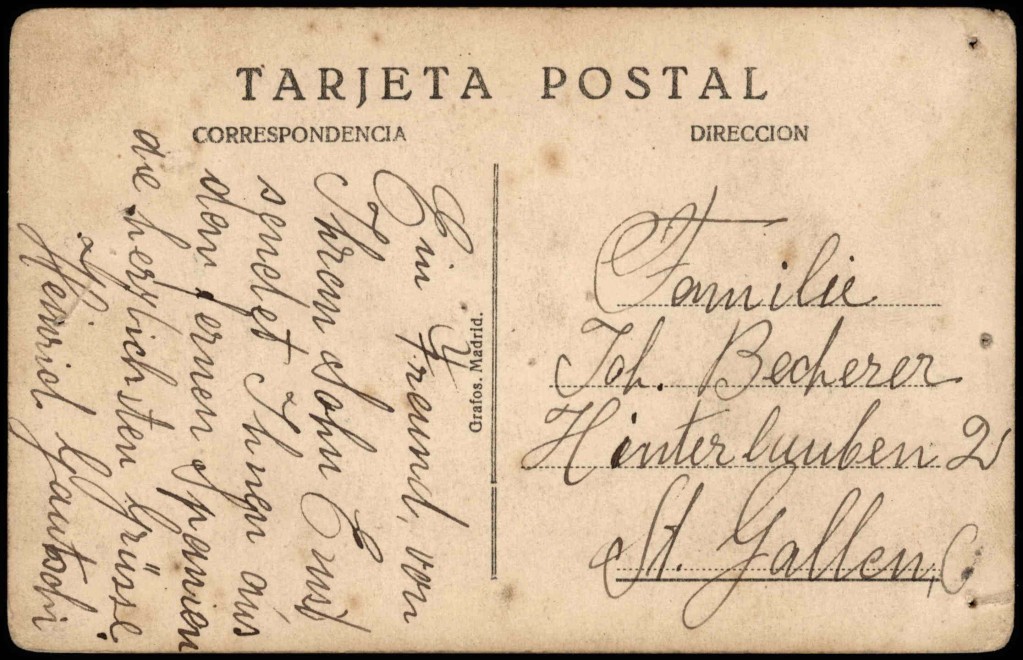 TARJETA POSTAL
CORRESPONDENCIA
DIRECCION
Ein Freund, von
Ihrem Sohn Ernst
sendet Ihnen aus
dem fernen Spanien
die herzlichsten Grüsse
Heinrich Gautschi
Grafos. Madrid.
Familie
Joh. Becherer
Hinterlauben 2
St. Gallen, C